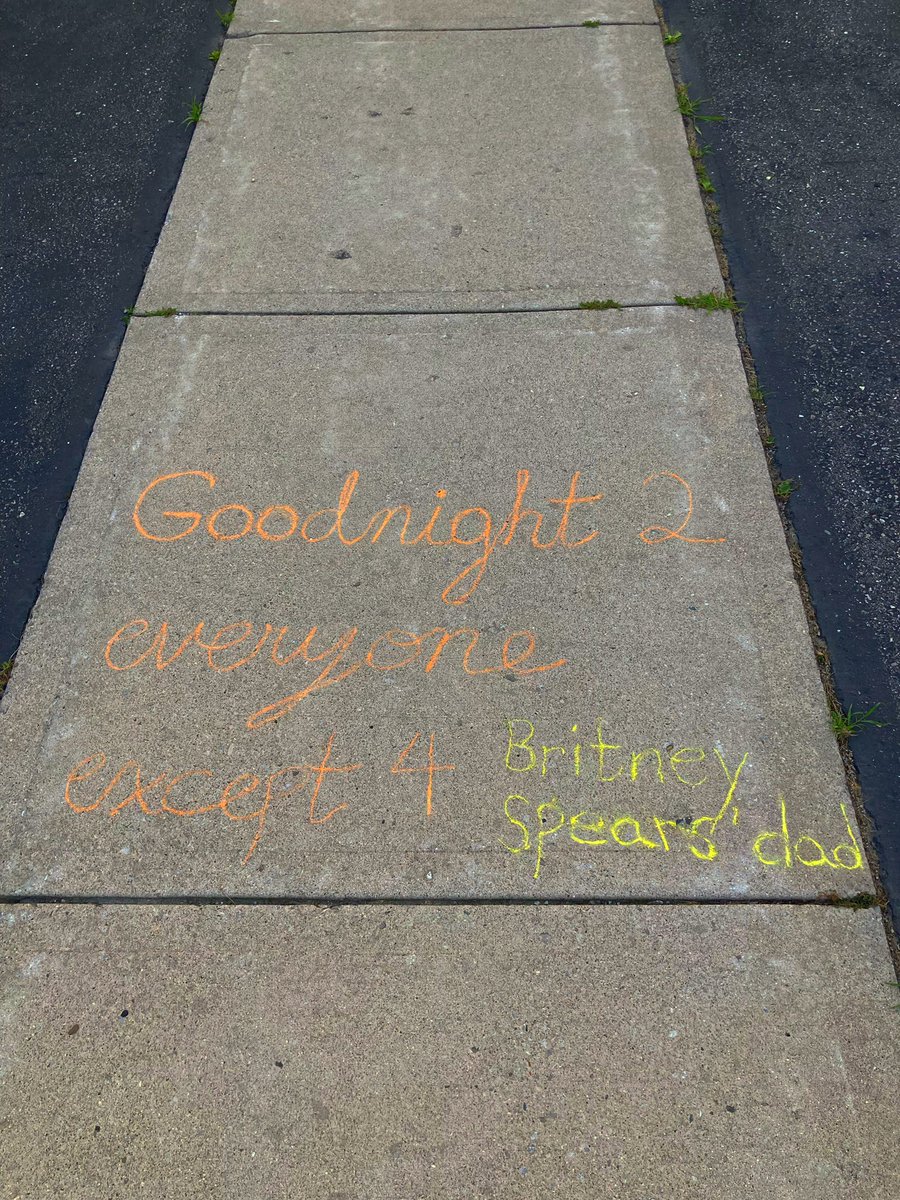 Goodnight 2
everyone
except 4 Britney
Spears' dad